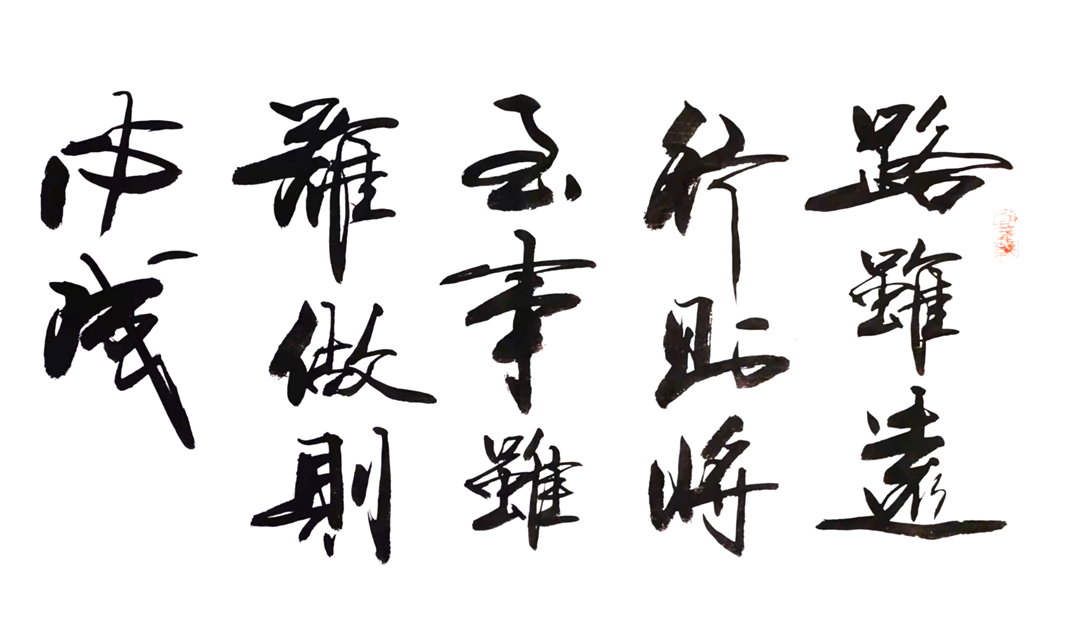 路雖遠
行則將
至事雖
難做則
必成